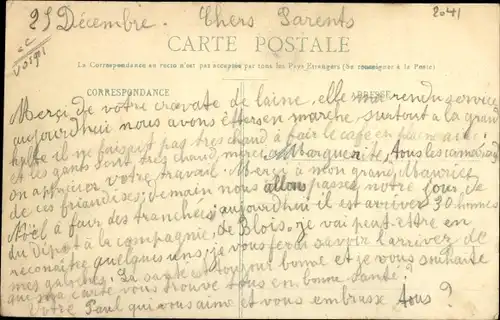 23 Décembre. Chers Parents
2041
CARTE POSTALE
La Correspondance au recto n'est pas acceptée par tous les Pays Étrangers (Se renseigner à la Poste)
CORRESPONDANCE
ADRESSE
Merçi de votre cravate de laine, elle rendu service
aujourdhui nous avons êtés en marche, surtout a la grand
halte il ne faisait pas tres chaud a fair le café en plaine air.
et les gants sont tres chaud, merci a Marguerite, tous les camarad
on apprécier votre travail. Merçi à mon grand Maurice
de ces friandises, demain nous allons passer notre jour de
Noël à fair des tranchées, aujourdhui il est arriver 30 hommes
du Dépot à la compagnie, de Blois. je vai peut-être en
reconaître quelques uns, je vous ferai savoir l'arrivez de
mes galoches. La santé est toujour bonne et je vous souhaite
que ma carte vous trouve tous en bonne santé.
Votre Paul qui vous aime et vous embrasse tous